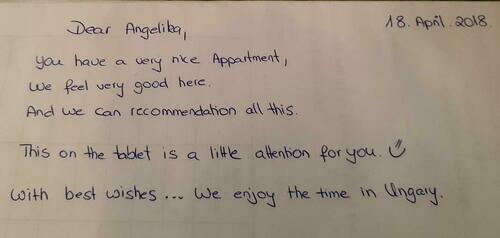 Dear Angelika, 18. April. 2018.
You have a very nice Appartment,
We feel very good here.
And we can recommendation all this.
This on the tablet is a little attention for you.
With best wishes ... We enjoy the time in Ungary.